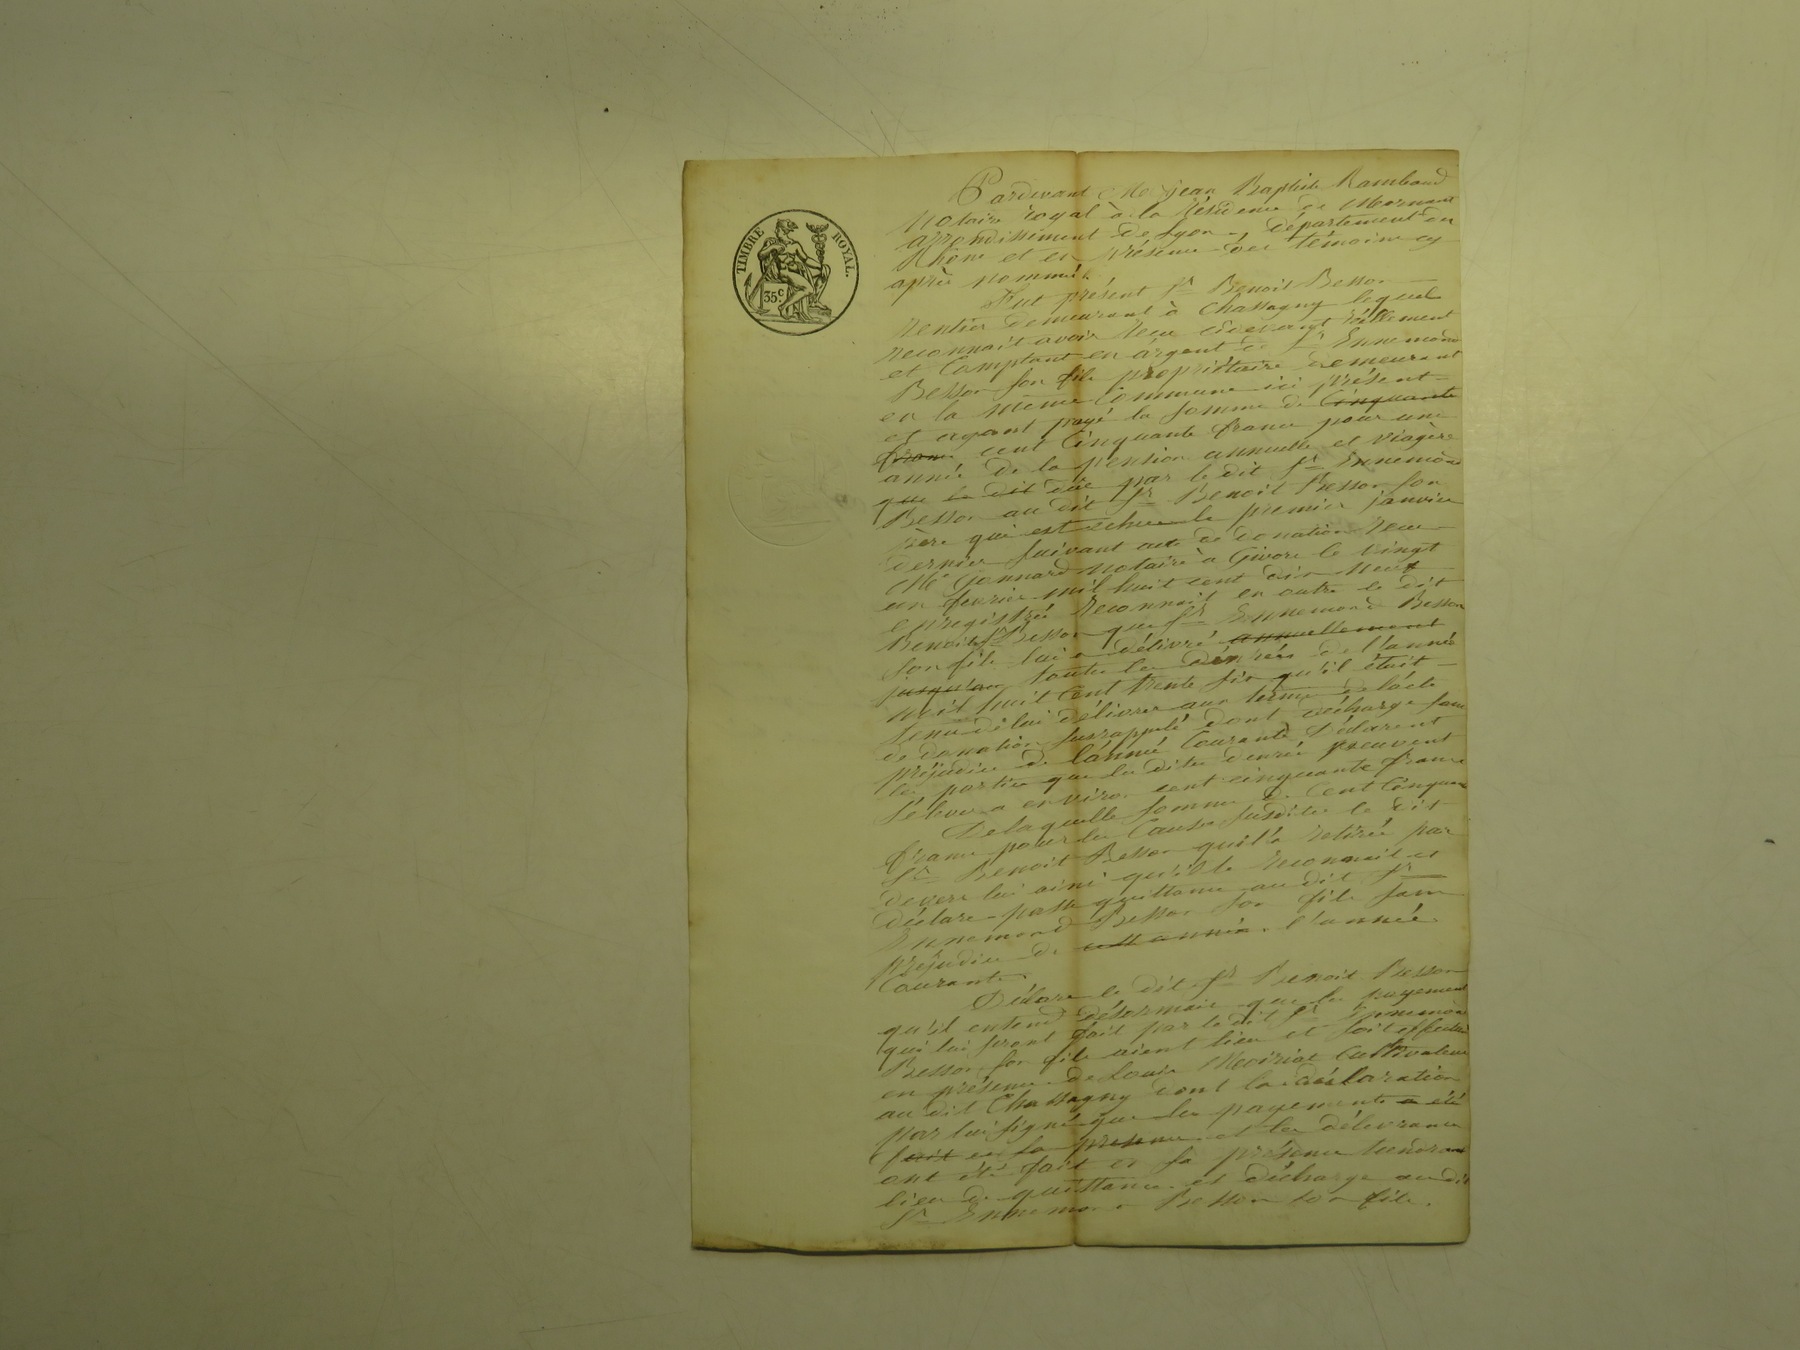 TIMBRE ROYAL.
35c
Pardevant Me jean Baptiste Rambaud
Notaire royal à la Résidence de Mornant
arrondissement de Lyon, département du
Rhône et en Présence des témoins cy
après nommés.
Fut présent Sr Benoit Besson
Rentier demeurant à Chassagny lequel
reconnait avoir reçu cidevant réellement
et Comptant en argent de Sr Ennemond
Besson son fils propriétaire demeurant
en la même Commune ici présent
et ayant payé la somme de Cinquante
francs cent Cinquante francs pour une
année de la pension annuelle et viagère
que le dit due par le dit Sr Ennemond
Besson au dit Sr Benoit Besson son
père qui est échue le premier janvier
dernier suivant acte de donation reçu
Me Gonnard Notaire à Givors le vingt
un fevrier mil huit cent dix Neuf
enregistré Reconnait en outre le dit
Benoit Sr Besson que Sr Ennemond Besson
son fils lui a délivré annuellement
jusqu'au toutes les denrées de l'année
mil huit Cent trente six qu'il était
tenu de lui délivrer aux termes de l'acte
de donation susrappelé dont décharge sans
préjudice de l'année Courante Déclarent
les parties que les dites denrées peuvent
s'élever a environ cent cinquante francs
De laquelle somme de Cent Cinquante
francs pour les Causes susdites le dit
Sr Benoit Besson quil a retirée par
devers lui ainsi qu'il le reconnait et
déclare passe quittance au dit Sr
Ennemond Besson son fils sans
préjudice de cette année. l'année
Courante
Déclare le dit Sr Benoit Besson
qu'il entend désormais que les payements
qui lui seront fait par le dit Sr Ennemond
Besson son fils aient lieu et soit effectués
en présence de Louis Cultivateur
au dit Chassagny dont la déclaration
par lui signé que les payements a été
fait en sa presence et les délivrances
ont été fait en sa présence tiendront
lieu de quittance et décharge au dit
Sr Ennemond Besson son fils.